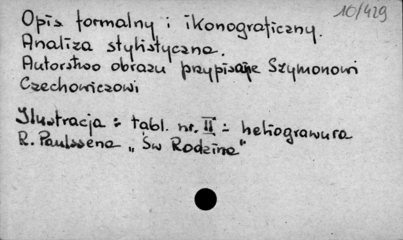 10/429
Opis formalny i ikonograficzny.
Analiza stylistyczna.
Autorstwo obrazu przypisane Szymonowi
Czechowiczowi
Ilustracja: tabl. nr. II: heliograwura
R. Paulssena "Św Rodzina"